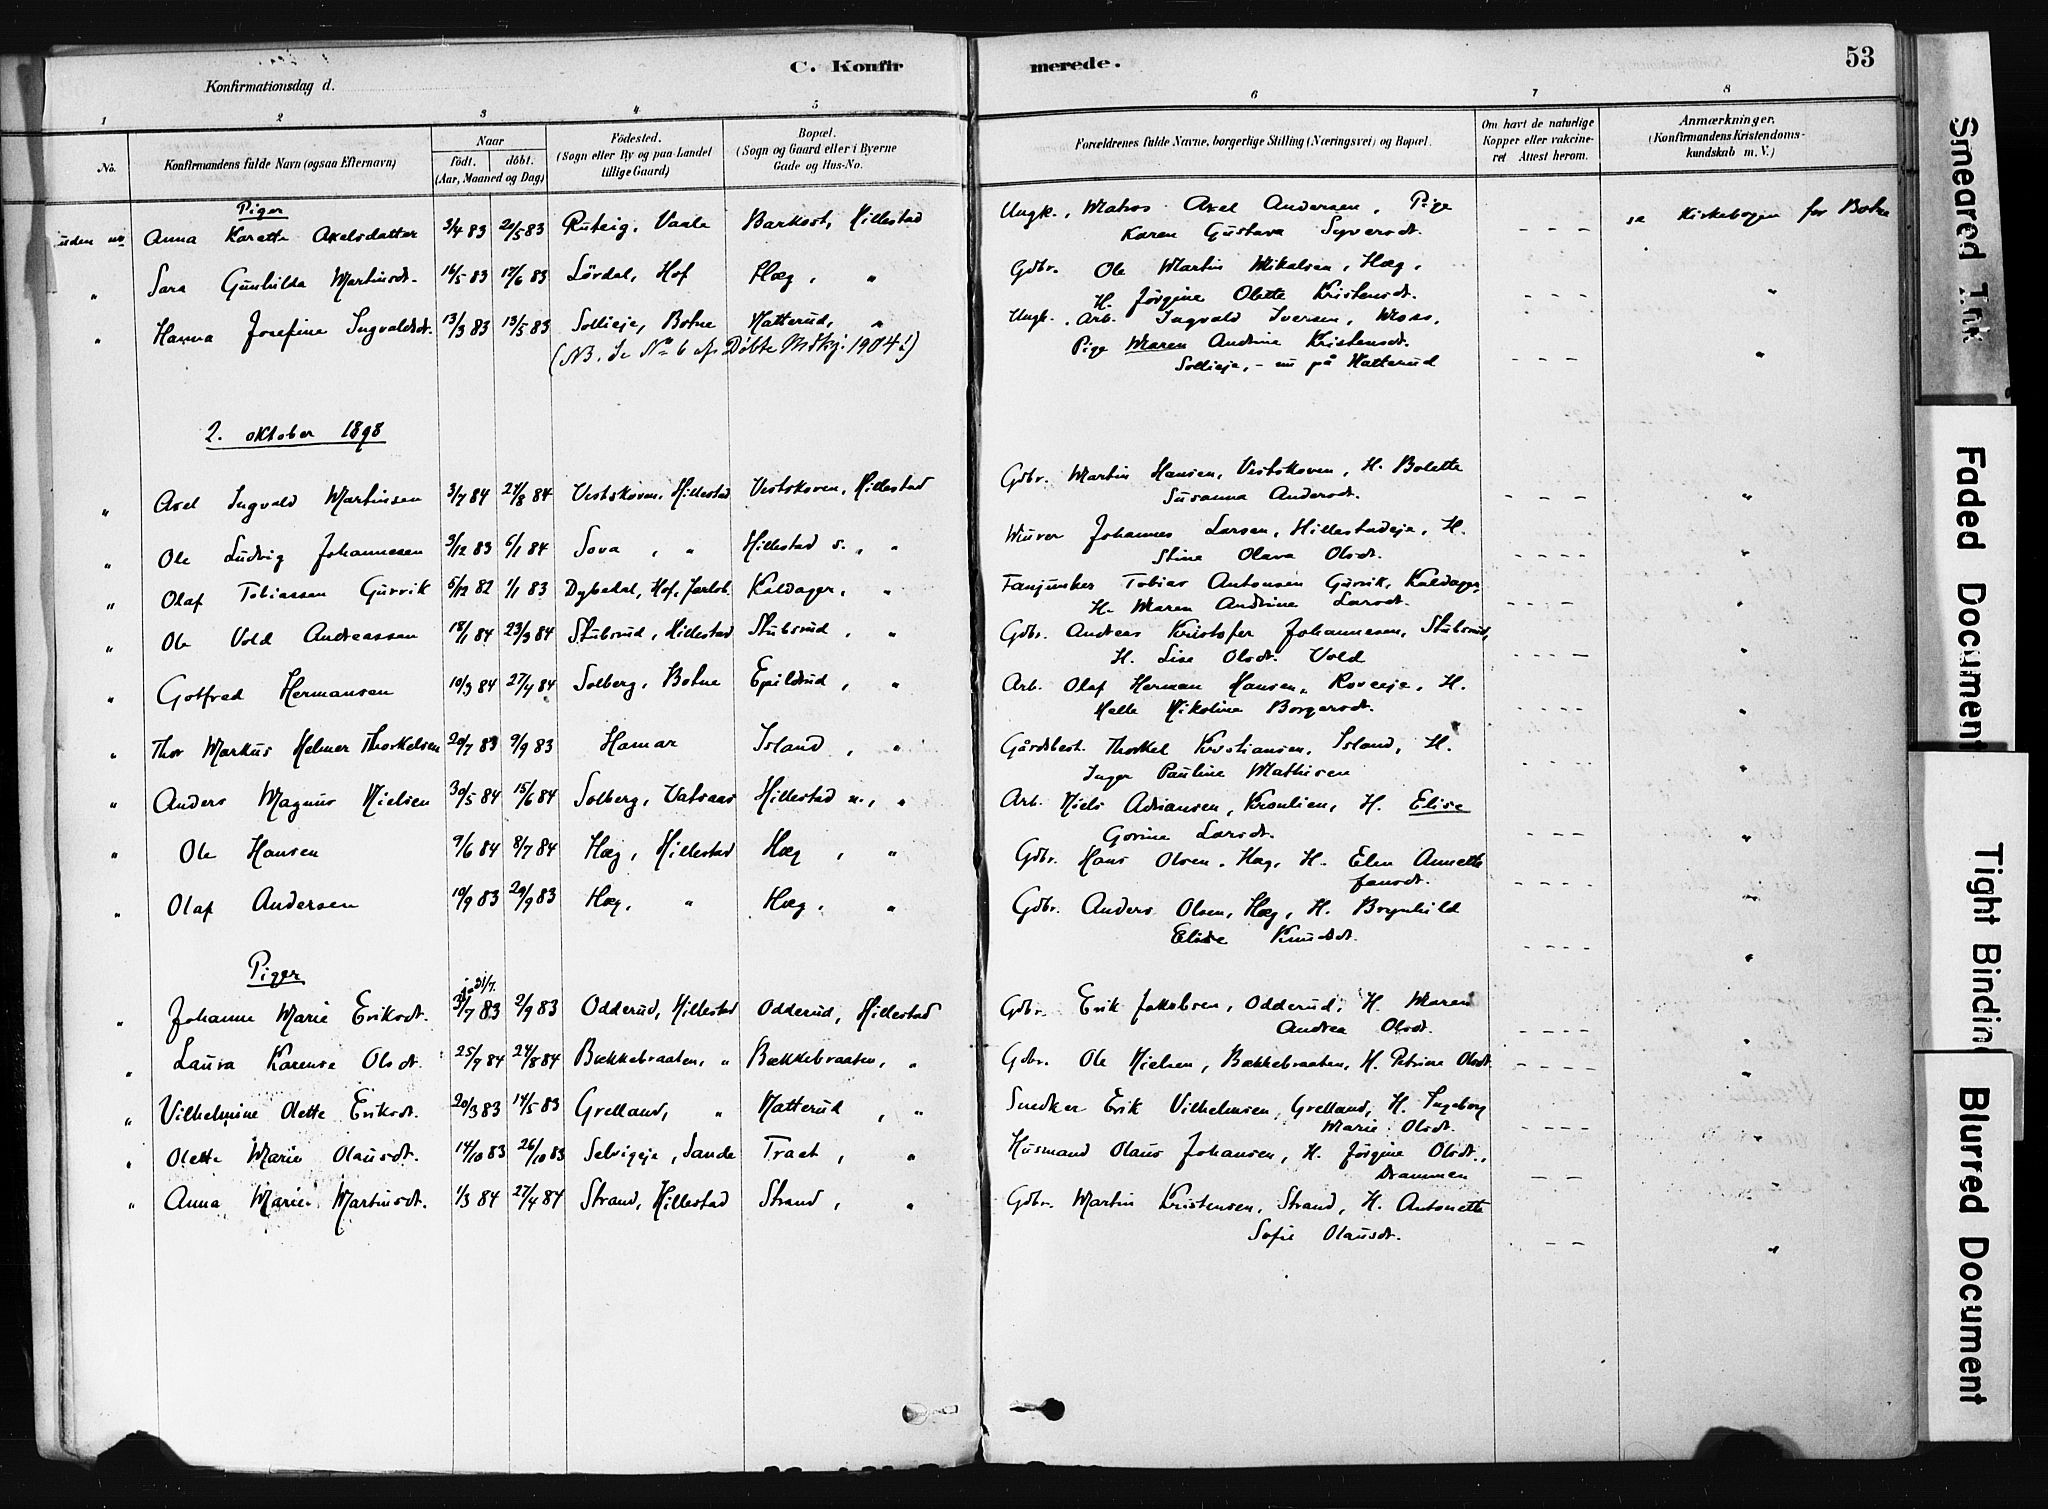 53
C. Konfir merede.
Konfirmationsdag d.
1 2 3 4 5 6 7 8
No.
Konfirmandens fulde Navn (ogsaa Efternavn)
Naar
født. døbt.
(Aar, Maaned og Dag)
Fødested.
(Sogn eller By og paa Landet
tillige Gaard)
Bopæl.
(Sogn og Gaard eller i Byerne
Gade og Hus-No.
Forældrenes fulde Navne, borgerlige Stilling (Næringsvei) og Bopæl.
Om havt de naturlige
Kopper eller vakcine-
ret Attest herom.
Anmærkninger.
(Konfirmandens Kristendoms-
kundskab m. V.)
Piger
uden no Anna Karette Axelsdatter 3/4 83 20/5 83 Ruteig, Vaale Barkost, Hillestad Ungk., Matros Axel Andersen, Pige - - - se Kirkebogen for Botne
Karen Gustava Syversdt.
" Sara Gunhilda Martinsdt. 16/5 83 17/6 83 Lördal, Hof Hæg, " Gdbr. Ole Martin Mikalsen, Hæg, - - - "
H. Jörgine Olette Kristensdt.
" Hanna Josefine Ingvaldsdt. 13/3 83 13/5 83 Sollieje, Botne Hatterud, " Ungk. Arb. Ingvald Iversen, Moss,
(NB. Se No 6 af Döbte Mdkj. 1904!) Pige Maren Andrine Kristensdt.
Sollieje, - nu på Hatterud - - - "
2. oktober 1898
" Axel Ingvald Martinsen 3/7 84 24/8 84 Vestskoven, Hillestad Vestskoven, Hillestad Gdbr. Martin Hansen, Vestskoven, H. Bolette
Susanna Andersdt. - - - "
" Ole Ludvig Johannesen 3/12 83 6/1 84 Sova, " Hillestad s., " Murer Johannes Larsen, Hillestadeje, H.
Stine Olava Olsdt. - - - - "
" Olaf Tobiassen Gurvik 5/12 82 1/1 83 Dybedal, Hof, Jarlsb. Kaldager, " Fanjunker Tobias Antonsen Gurvik, Kaldager,
H. Maren Andrine Larsdt. - - - - "
" Ole Vold Andreassen 18/1 84 23/3 84 Stubsrud, Hillestad Stubsrud, " Gdbr. Andreas Kristofer Johannesen, Stubsrud,
H. Lise Olsdt. Vold - - - - "
" Gotfred Hermansen 10/3 84 27/4 84 Solberg, Botne Epildrud, " Arb. Olaf Herman Hansen, Roveeje, H.
Helle Nikoline Borgersdt. - - - - "
" Thor Markus Helmer Thorkelsen 20/7 83 9/9 83 Hamar Island, " Gårdsbest. Thorkel Kristiansen, Island, H.
Inger Pauline Mathisen - - - - "
" Anders Magnus Nielsen 30/5 84 15/6 84 Solberg, Vatsaas Hillestad n., " Arb. Niels Adriansen, Kronlien, H. Elise
Gorine Larsdt. - - - - "
" Ole Hansen 9/6 84 8/7 84 Hæg, Hillestad Hæg, " Gdbr. Hans Olsen, Hæg, H. Elen Annette
Jansdt. - - - - "
" Olaf Andersen 10/9 83 29/9 83 Hæg, " Hæg, " Gdbr. Anders Olsen, Hæg, H. Brynhild
Elise Knudsdt. - - - - "
Piger
" Johanne Marie Eriksdt. 31/7 83 2/9 83 Odderud, Hillestad Odderud, Hillestad Gdbr. Erik Jakobsen, Odderud, H. Maren
Andrea Olsdt. - - - - "
" Laura Karense Olsdt. 25/7 84 24/8 84 Bækkebraaten, " Bækkebraaten, " Gdbr. Ole Nielsen, Bækkebraaten, H. Petrine Olsdt. - - - - "
" Vilhelmine Olette Eriksdt. 20/3 83 14/5 83 Grelland, " Hatterud, " Snedker Erik Vilhelmsen, Grelland, H. Ingeborg
Marie Olsdt. - - - - "
" Olette Marie Olausdt. 14/10 83 26/10 83 Selvigeje, Sande Traet, " Husmand Olaus Johansen, H. Jörgine Olsdt.,
Drammen - - "
" Anna Marie Martinsdt. 1/3 84 27/4 84 Strand, Hillestad Strand, " Gdbr. Martin Kristensen, Strand, H. Antonette
Sofie Olausdt. - - "
Smeared Ink
Faded Document
Tight Bindin
Blurred Document